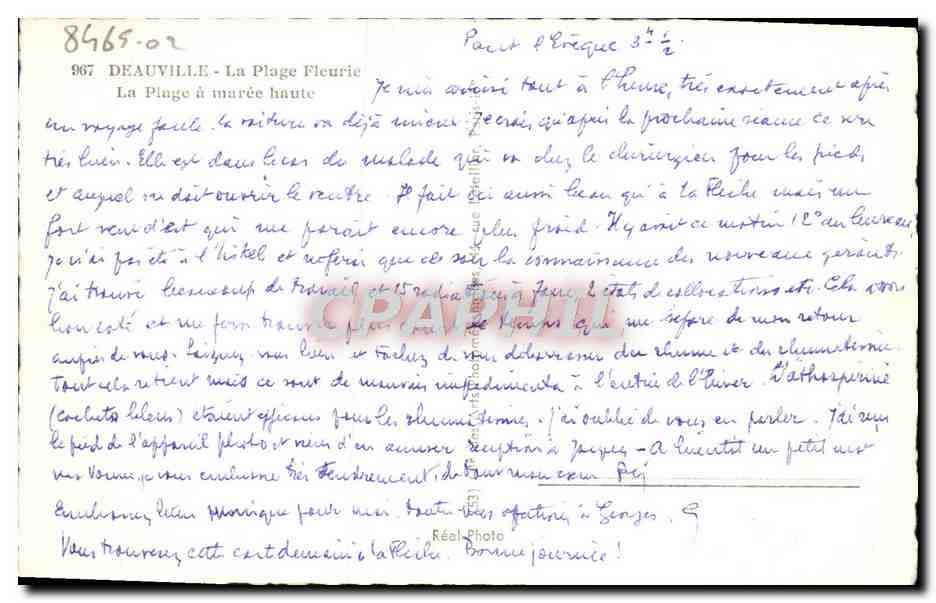 8465-02
Pont l'Evêque 3h 1/2
967 DEAUVILLE - La Plage Fleurie
La Plage à marée haute
Je suis arrivé tout à l'heure, très exactement après
un voyage facile. La voiture va déjà mieux. Je crois qu'après la prochaine séance ce sera
très bien. Elle est dans le cas du malade qui va chez le chirurgien pour les pieds
et auquel on doit ouvrir le ventre. Il fait ici aussi beau qu'à La Flèche mais un
fort vent d'est qui me paraît encore plus froid. Il y avait ce matin 12° au bureau,
Je n'ai passé à l'hôtel et ne ferai que ce soir la connaissance des nouveaux gérants.
J'ai trouvé beaucoup de travail et 15 radiations à faire, 2 états de collocations etc. Cela a son
bon côté et me fera trouver plus court le temps qui me sépare de mon retour
auprès de vous. Soignez vous bien et tâchez de vous débarrasser du rhume et du rhumatisme
tout cela retient mais ce sont de mauvais impedimenta à l'entrée de l'hiver.
(cachets bleus) étaient efficaces pour les rhumatismes. J'ai oublié de vous en parler. J'ai reçu
le pied de l'appareil photo et viens d'en accuser réception à Jacques - A bientôt un petit mot
de vous, je vous embrasse très tendrement, de tout mon cœur
Embrassez bien Monique pour moi. Toutes mes affections à Georges. G
Réal-Photo
Vous trouverez cette carte demain à La Flèche. Bonne journée!
CPAPHIL